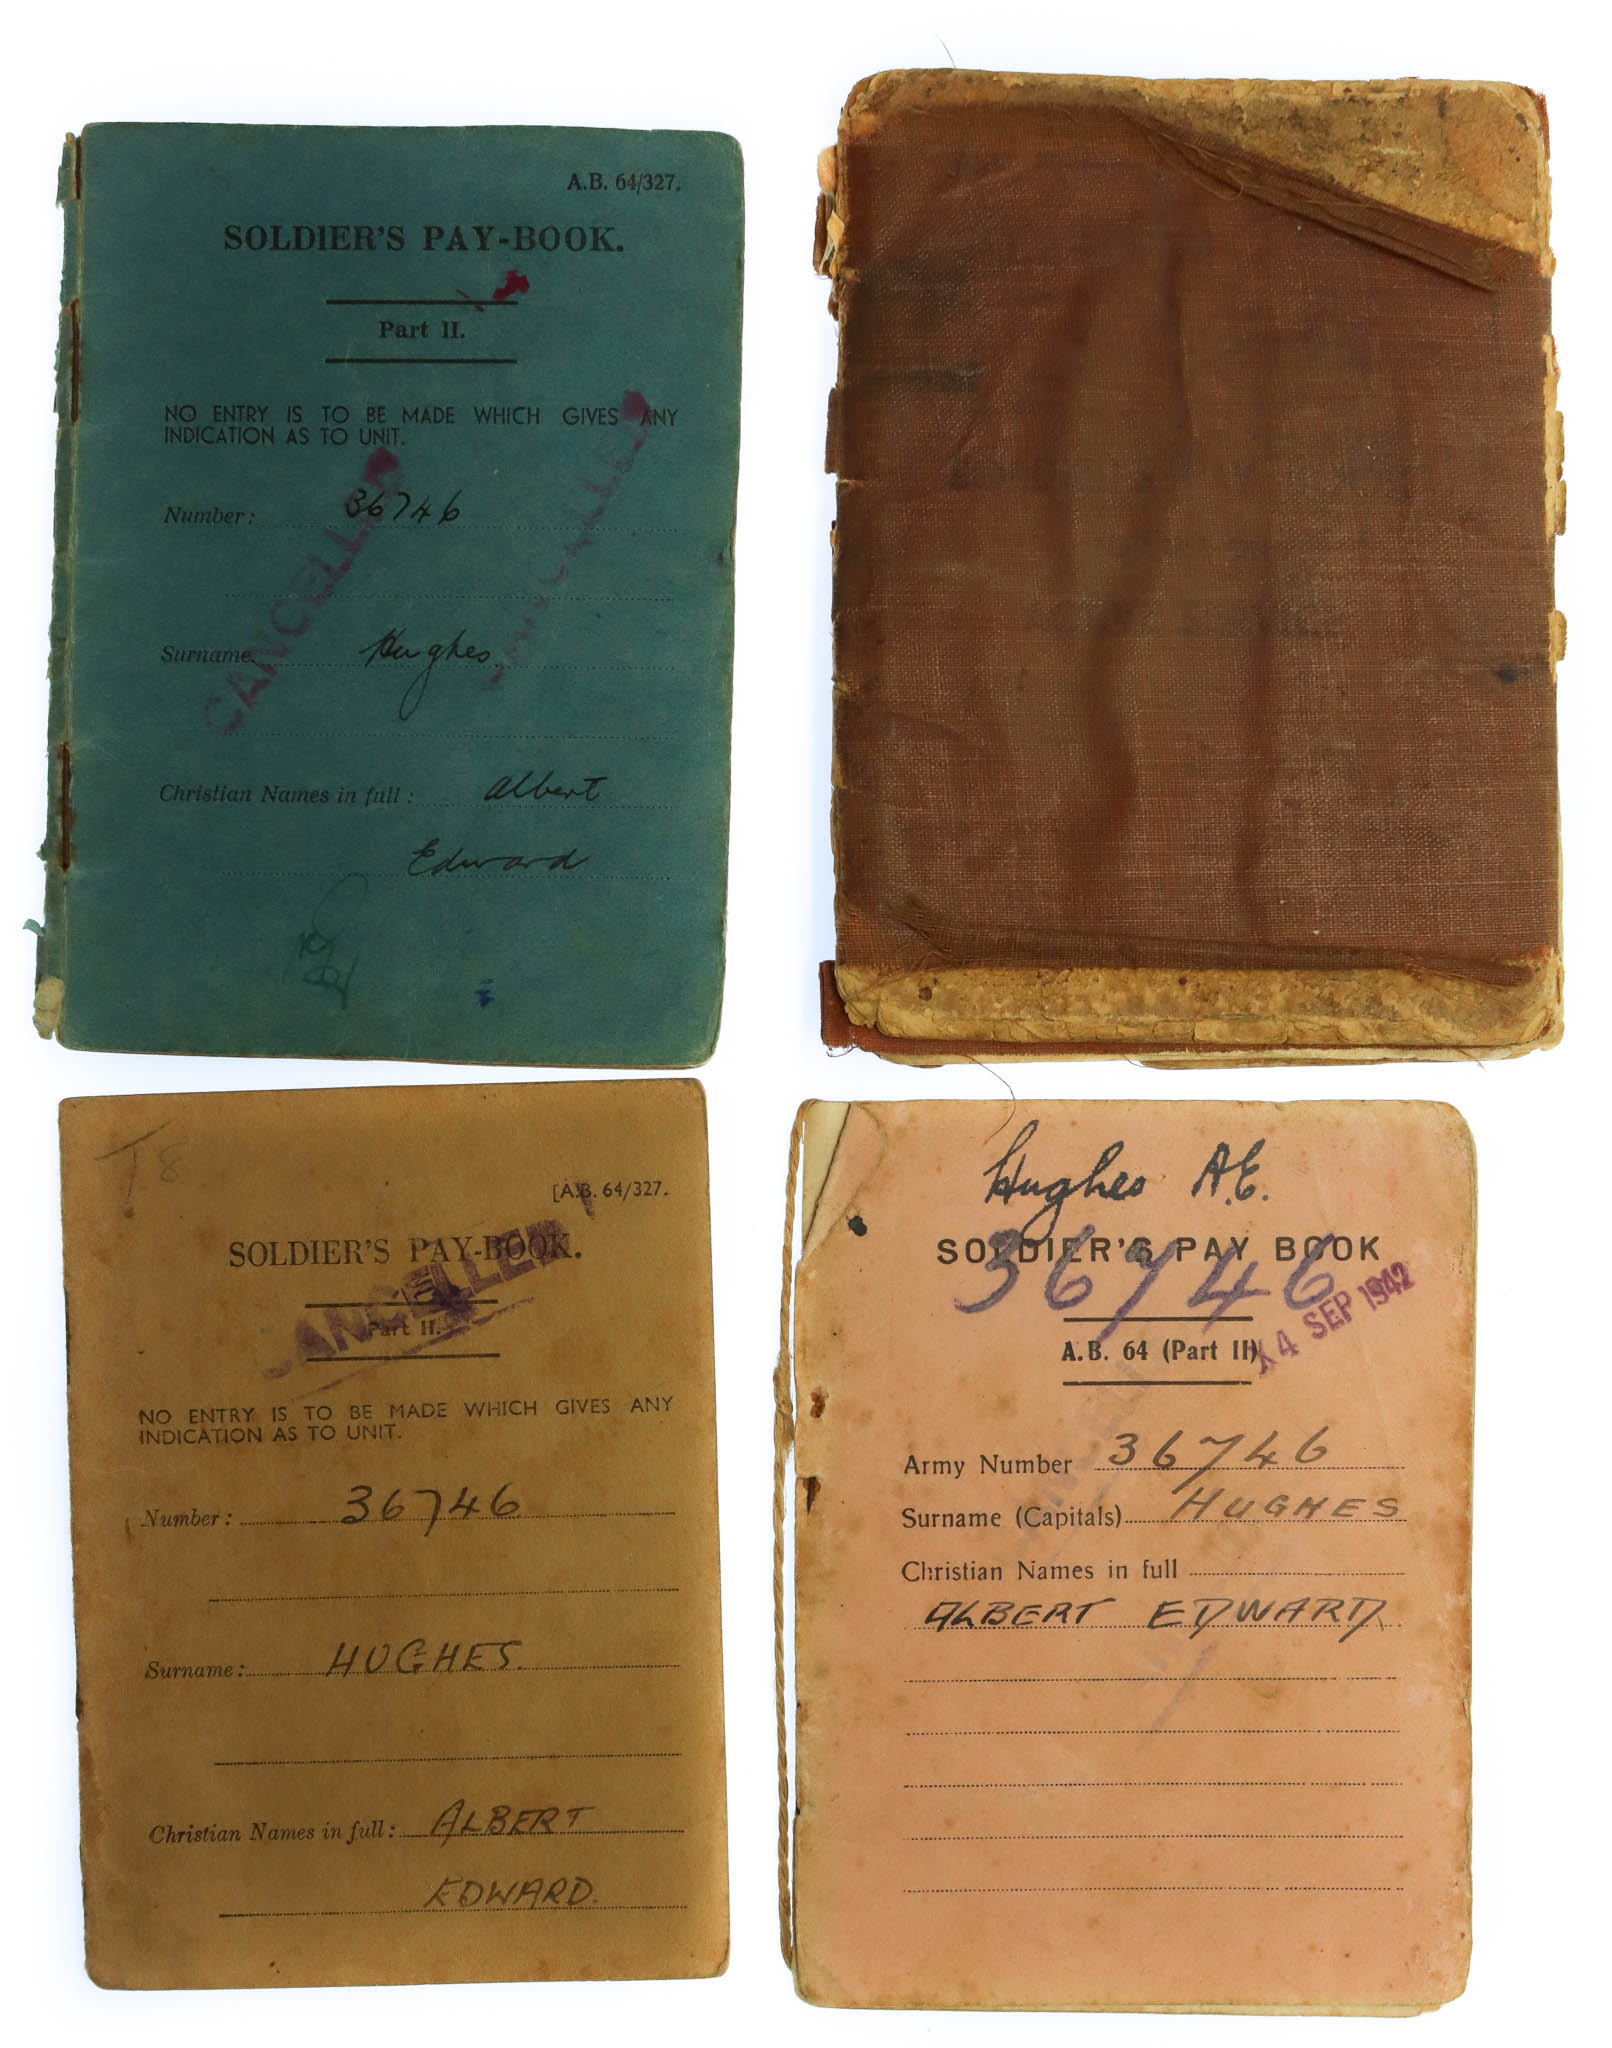 A.B. 64/327.
SOLDIER'S PAY-BOOK.
Part II.
NO ENTRY IS TO BE MADE WHICH GIVES ANY
INDICATION AS TO UNIT.
Number: 36746
CANCELLED
CANCELLED
Surname Hughes
Christian Names in full: Albert
Edward
T 8
[A.B. 64/327.
SOLDIER'S PAY-BOOK.
CANCELLED
Part II.
NO ENTRY IS TO BE MADE WHICH GIVES ANY
INDICATION AS TO UNIT.
Number: 36746
Surname: HUGHES.
Christian Names in full: ALBERT
EDWARD.
Hughes A.E.
SOLDIER'S PAY BOOK
36746
4 SEP 1942
A.B. 64 (Part II)
Army Number 36746
Surname (Capitals) HUGHES
Christian Names in full
ALBERT EDWARD